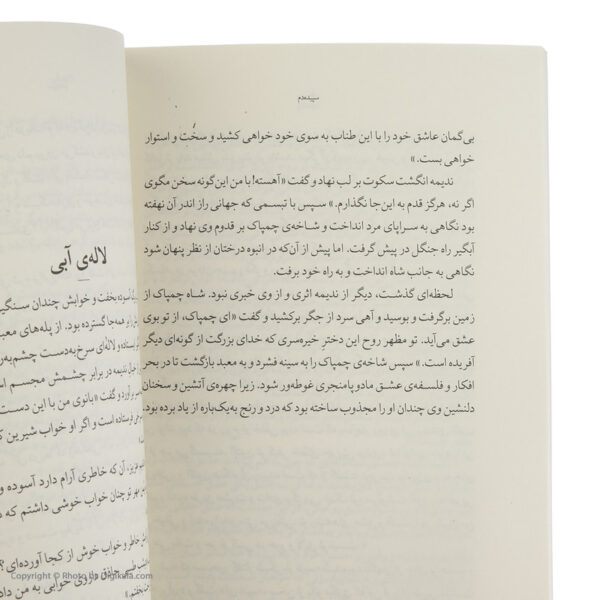 سپیده‌دم
بی‌گمان عاشق خود را با این طناب به سوی خود خواهی کشید و سخت و استوار
خواهی بست. »
ندیمه انگشت سکوت بر لب نهاد و گفت « آهسته! با من این‌گونه سخن مگوی
اگر نه، هرگز قدم به این‌جا نگذارم. » سپس با تبسمی که جهانی راز اندر آن نهفته
بود نگاهی به سراپای مرد انداخت و شاخه‌ی چمپاک بر قدوم وی نهاد و از کنار
آبگیر راه جنگل در پیش گرفت. اما پیش از آن‌که در انبوه درختان از نظر پنهان شود
نگاهی به جانب شاه انداخت و به راه خود برفت.
لحظه‌ای گذشت، دیگر از ندیمه اثری و از وی خبری نبود. شاه چمپاک از
زمین برگرفت و بوسید و آهی سرد از جگر برکشید و گفت « ای چمپاک، از تو بوی
عشق می‌آید. تو مظهر روح این دختر خیره‌سری که خدای بزرگت از گونه‌ای دیگر
آفریده است. » سپس شاخه‌ی چمپاک را به سینه فشرد و به معبد بازگشت تا در بحر
افکار و فلسفه‌ی عشق مادوپامنجری غوطه‌ور شود. زیرا چهره‌ی آتشین و سخنان
دلنشین وی چندان او را مجذوب ساخته بود که درد و رنج به‌یک‌باره از یاد برده بود.
لاله‌ی آبی
آسوده بخفت و خوابش چندان سنگین
همه‌جا گسترده بود. از پله‌های معبد
ایستاده و لاله‌ای سرخ به‌دست چشم به‌راه
ندیمه در برابر چشمش مجسم
برآورد و گفت « بانوی من با این دست
فرستاده است و اگر او خواب شیرین
عزیز، آن که خاطری آرام دارد آسوده و
مهر تو چنان خواب خوشی داشتم که
خاطر و خواب خوش از کجا آورده‌ای؟
طبیبی حاذق داروی خوابی به من
بخفتم.
Copyright © Photo by Digikala.com